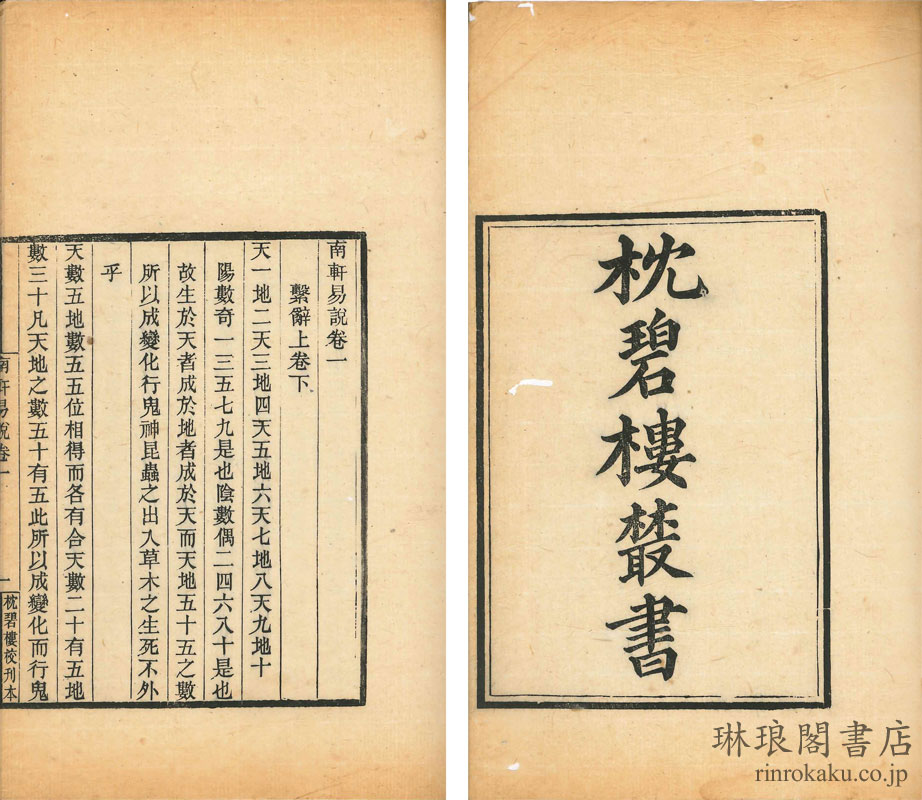 枕碧樓叢書
南軒易說卷一
繫辭上卷下
天一地二天三地四天五地六天七地八天九地十
陽數奇一三五七九是也陰數偶二四六八十是也
故生於天者成於地者成於天而天地五十五之數
所以成變化行鬼神昆蟲之出入草木之生死不外
乎
天數五地數五五位相得而各有合天數二十有五地
數三十凡天地之數五十有五此所以成變化而行鬼
南軒易說卷一
一
枕碧樓校刊本
琳琅閣書店
rinrokaku.co.jp